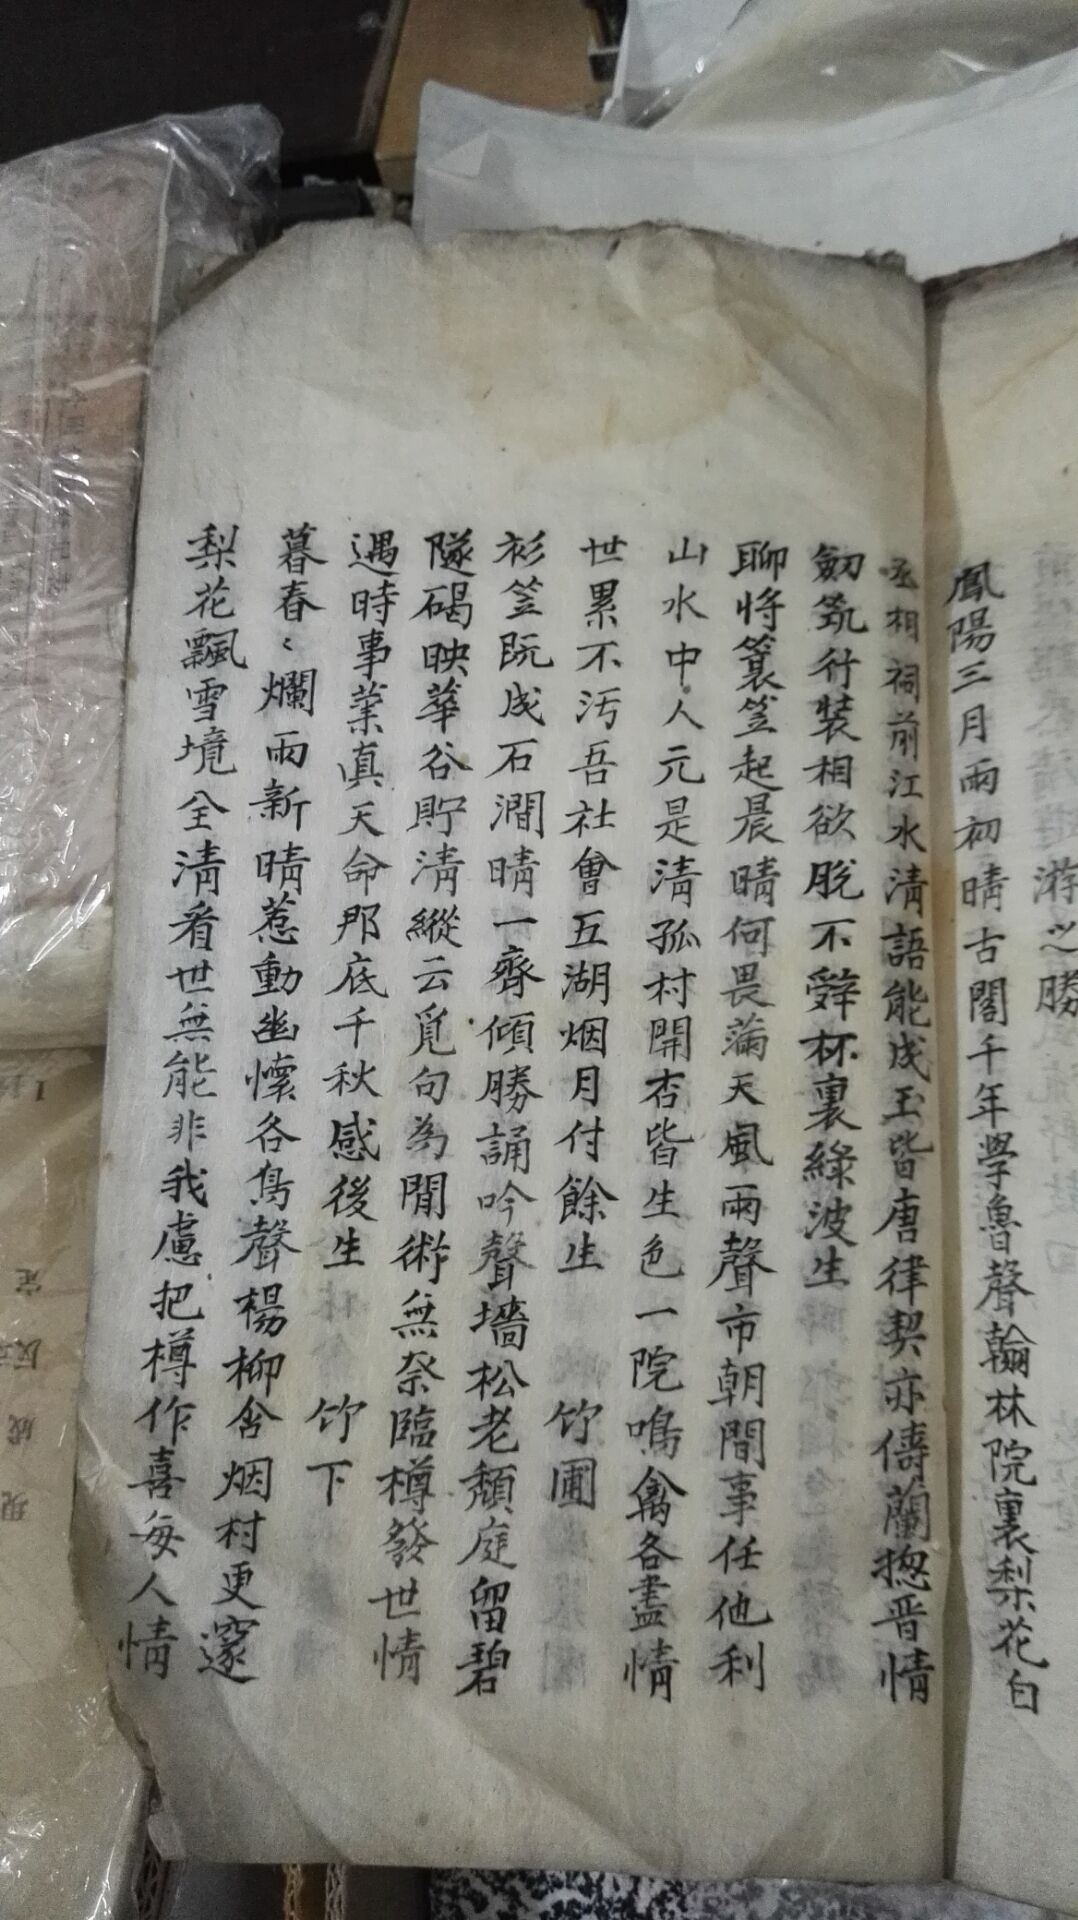 游之勝
鳳陽三月雨初晴古閣千年學魯聲翰林院裏梨花白
丞相祠前江水淸語能成玉皆唐律契亦儔蘭揔晋情
劒筑行裝相欲脫不辭杯裏綠波生
聊將簑笠起晨晴何畏滿天風雨聲市朝間事任他利
山水中人元是淸孤村開杏皆生色一院鳴禽各盡情
世累不汚吾社會五湖烟月付餘生 竹圃
衫笠旣成石澗晴一齊傾勝誦吟聲墻松老頹庭留碧
隧碣映華谷貯淸縱云覓句為閒術無奈臨樽發世情
遇時事業眞天命那底千秋感後生 竹下
暮春〻爛雨新晴惹動幽懷各鳥聲楊柳含烟村更邃
梨花飄雪境全淸看世無能非我慮把樽作喜每人情